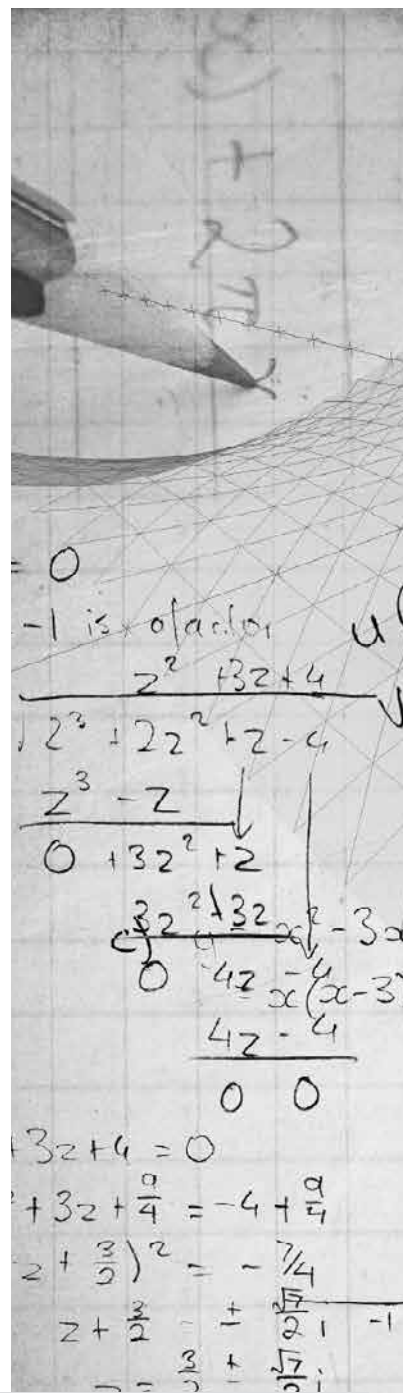 = 0
-1 is a factor
u(
z² +3z+4
z³ +2z² +z -4
z³ - z
0 +3z² +z
3z² +3z
x² - 3x
0 4z -4
x(x-3
4z - 4
0 0
+3z+4 = 0
+3z+9/4 = -4+9/4
z + 3/2)² = - 7/4
z + 3/2 = ± √7/2 i
-1
= 3/2 ± √7/2 i